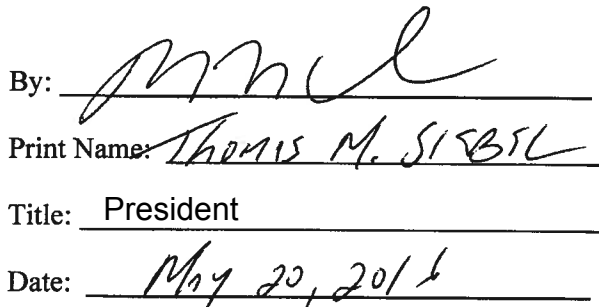 By:
Print Name: Thomas M. SIEBEL
Title: President
Date: May 20, 201